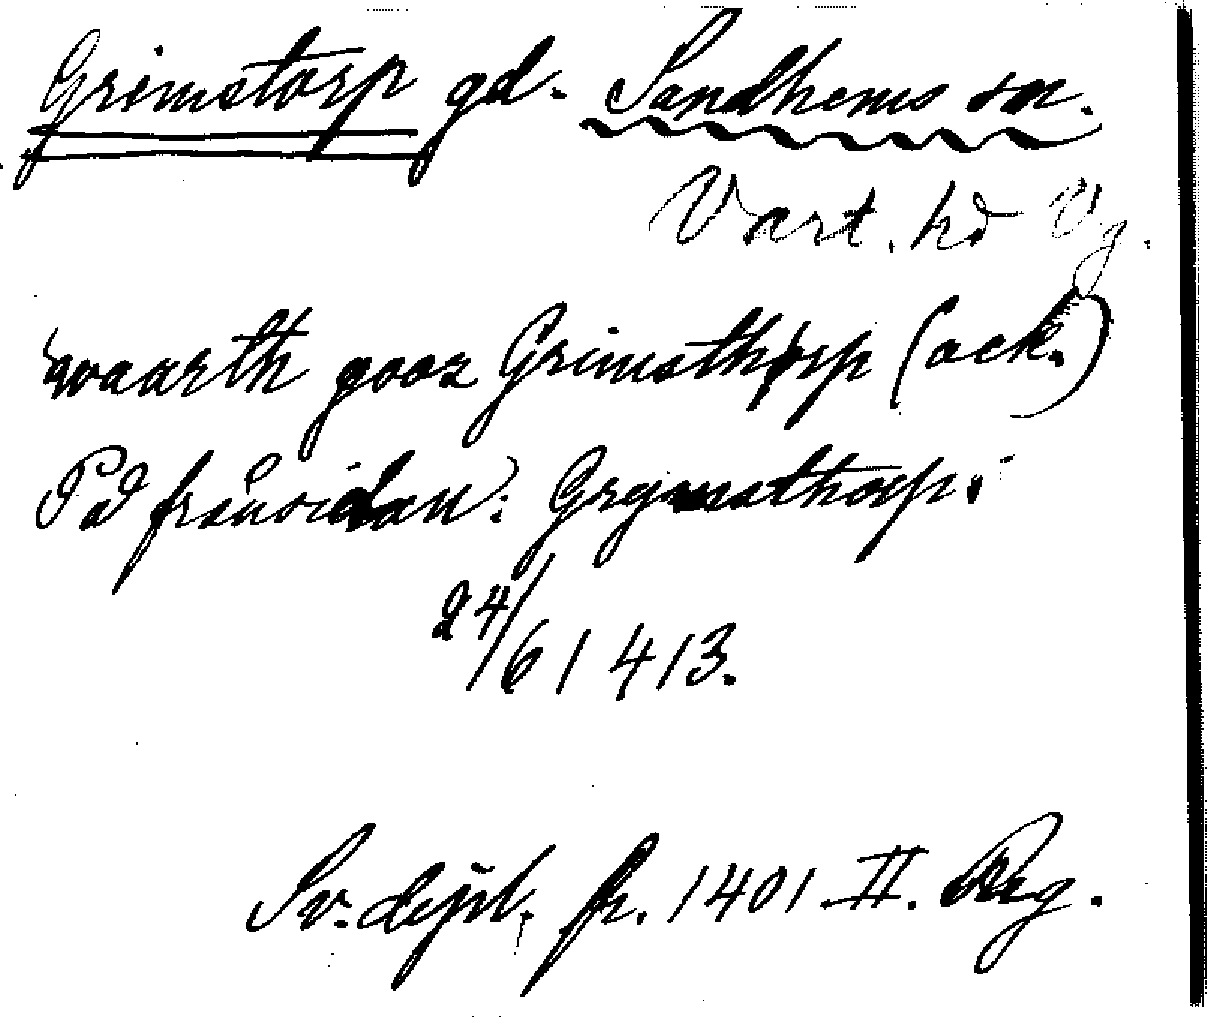 Grimstorp gd. Sandhems sn.
Vart. hd Vg.
waarth gooz Grimsthorp (ack.)
På frånsidan: Grymsthorp.
24/6 1413.
Sv. dipl. fr. 1401 II. Reg.